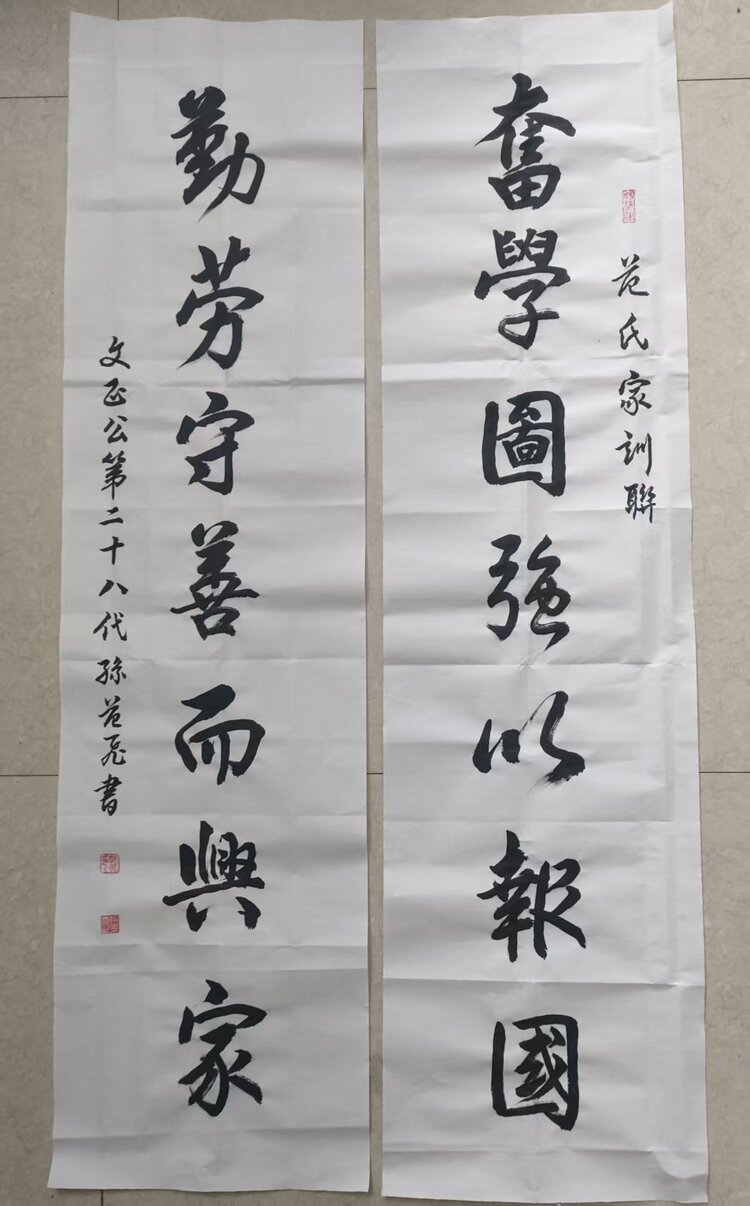 范氏家訓聯
奮學圖強以報國
勤劳守善而興家
文正公第二十八代孫范飛書